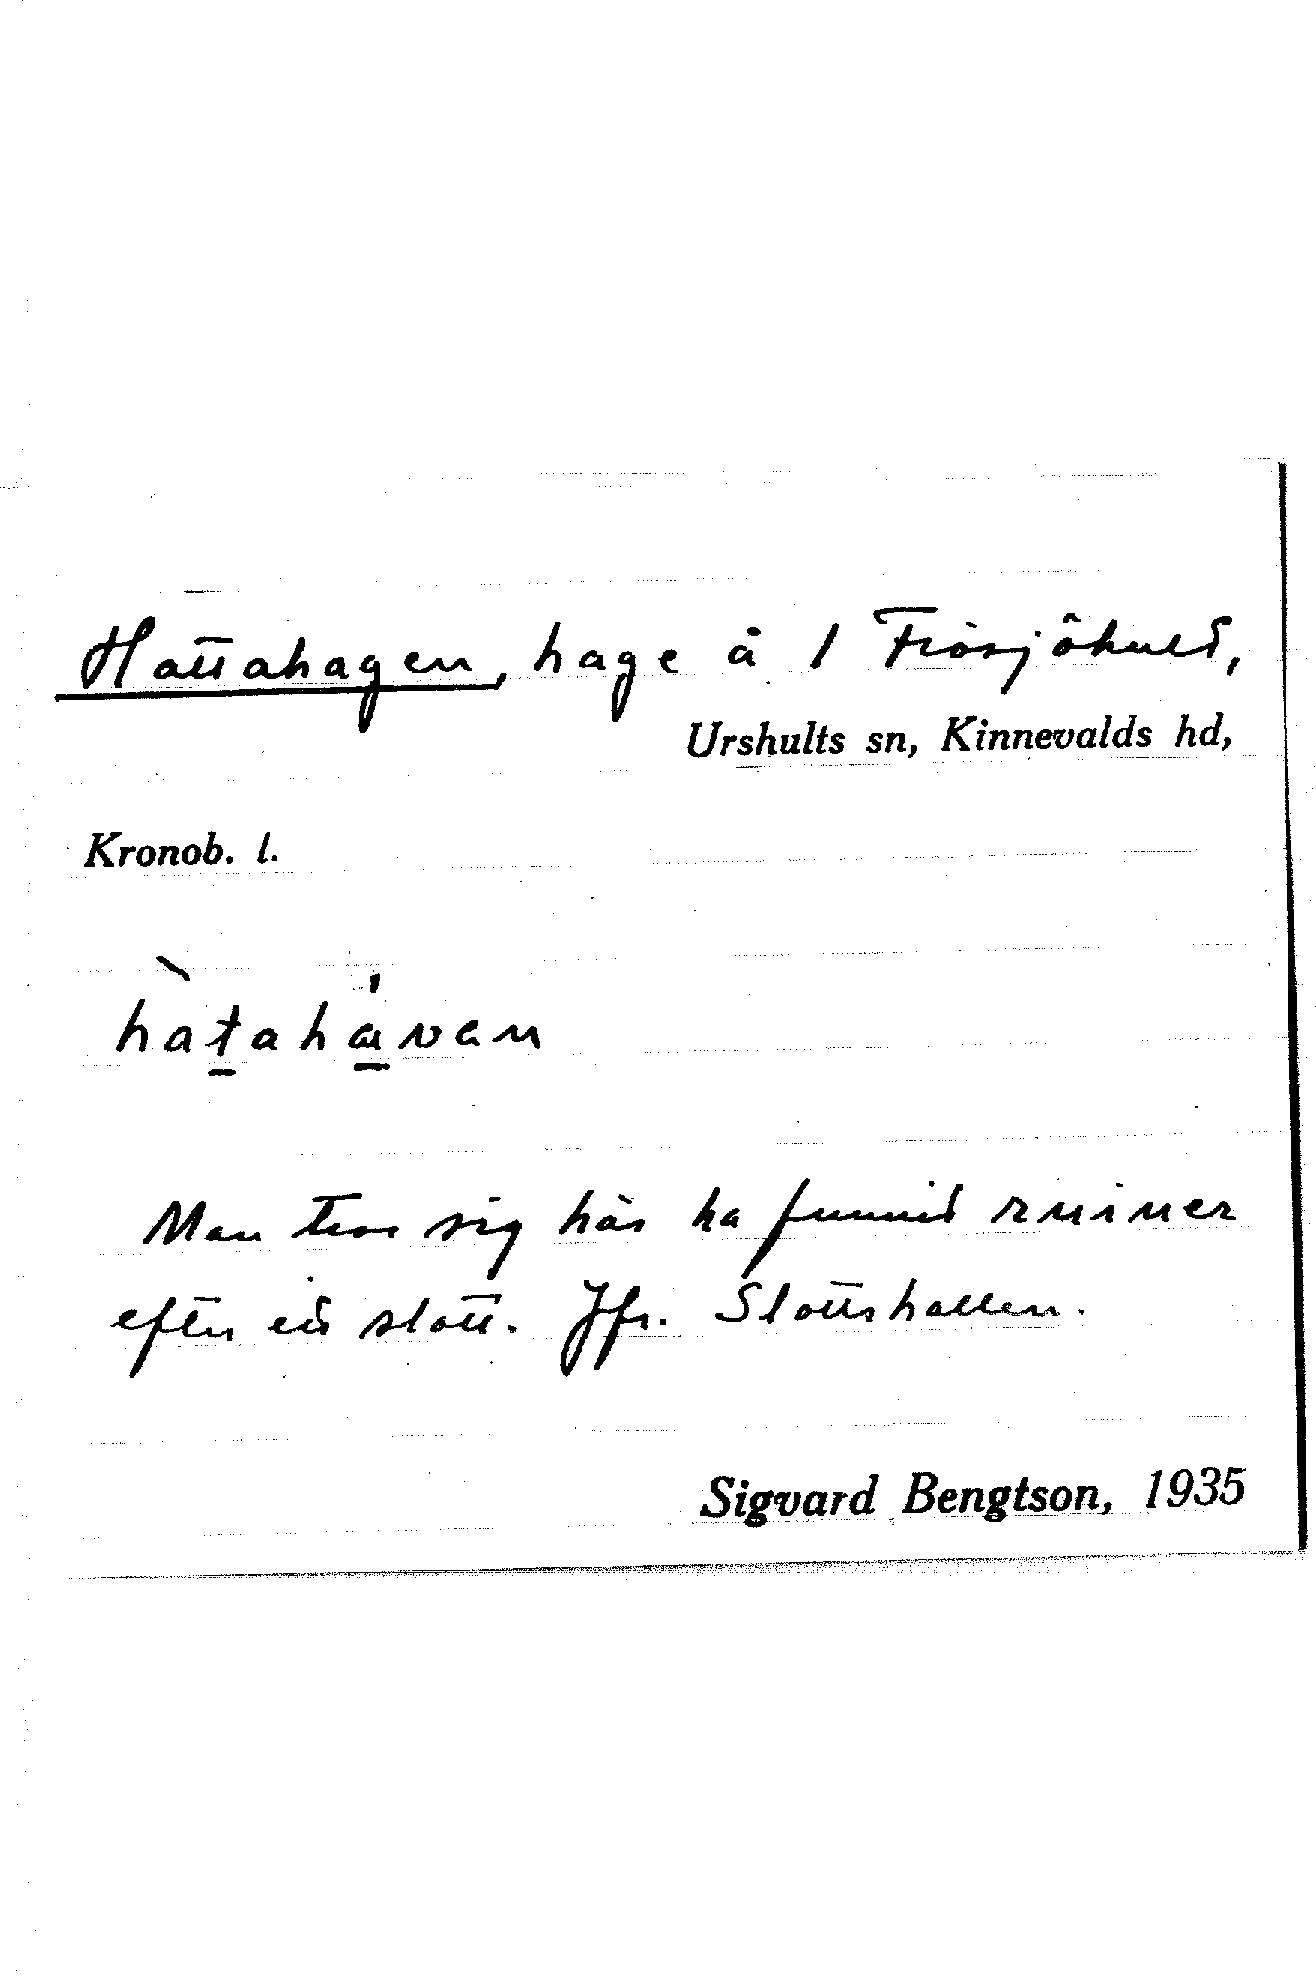 Hattahagen, hage å 1 Frösjöhult,
Urshults sn, Kinnevalds hd,
Kronob. l.
hàtahávan
Man tror sig här ha funnit ruiner
efter ett slott. Jfr. Slottshallen.
Sigvard Bengtson, 1935